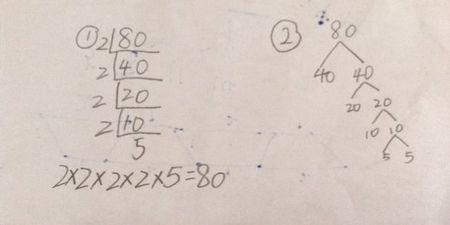 ① 2 80
2 40
2 20
2 10
5
2×2×2×2×5=80
② 80
40 40
20 20
10 10
5 5